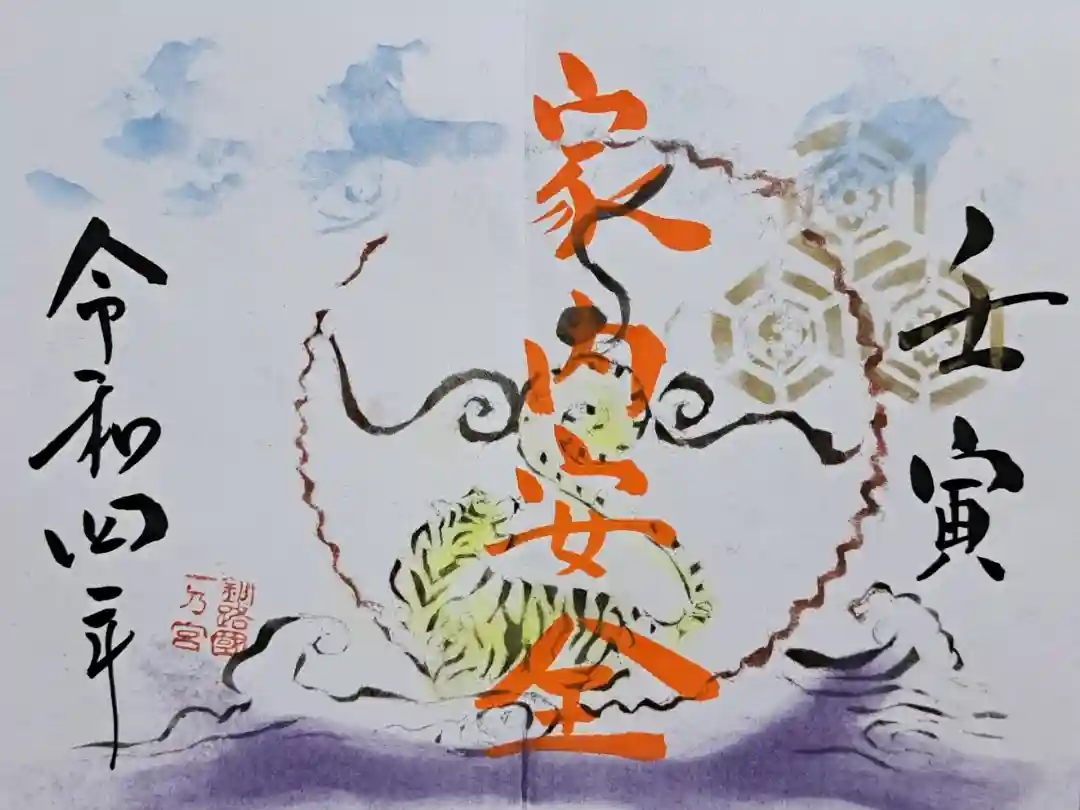 壬寅
家内安全
令和四年
釧路國
一乃宮